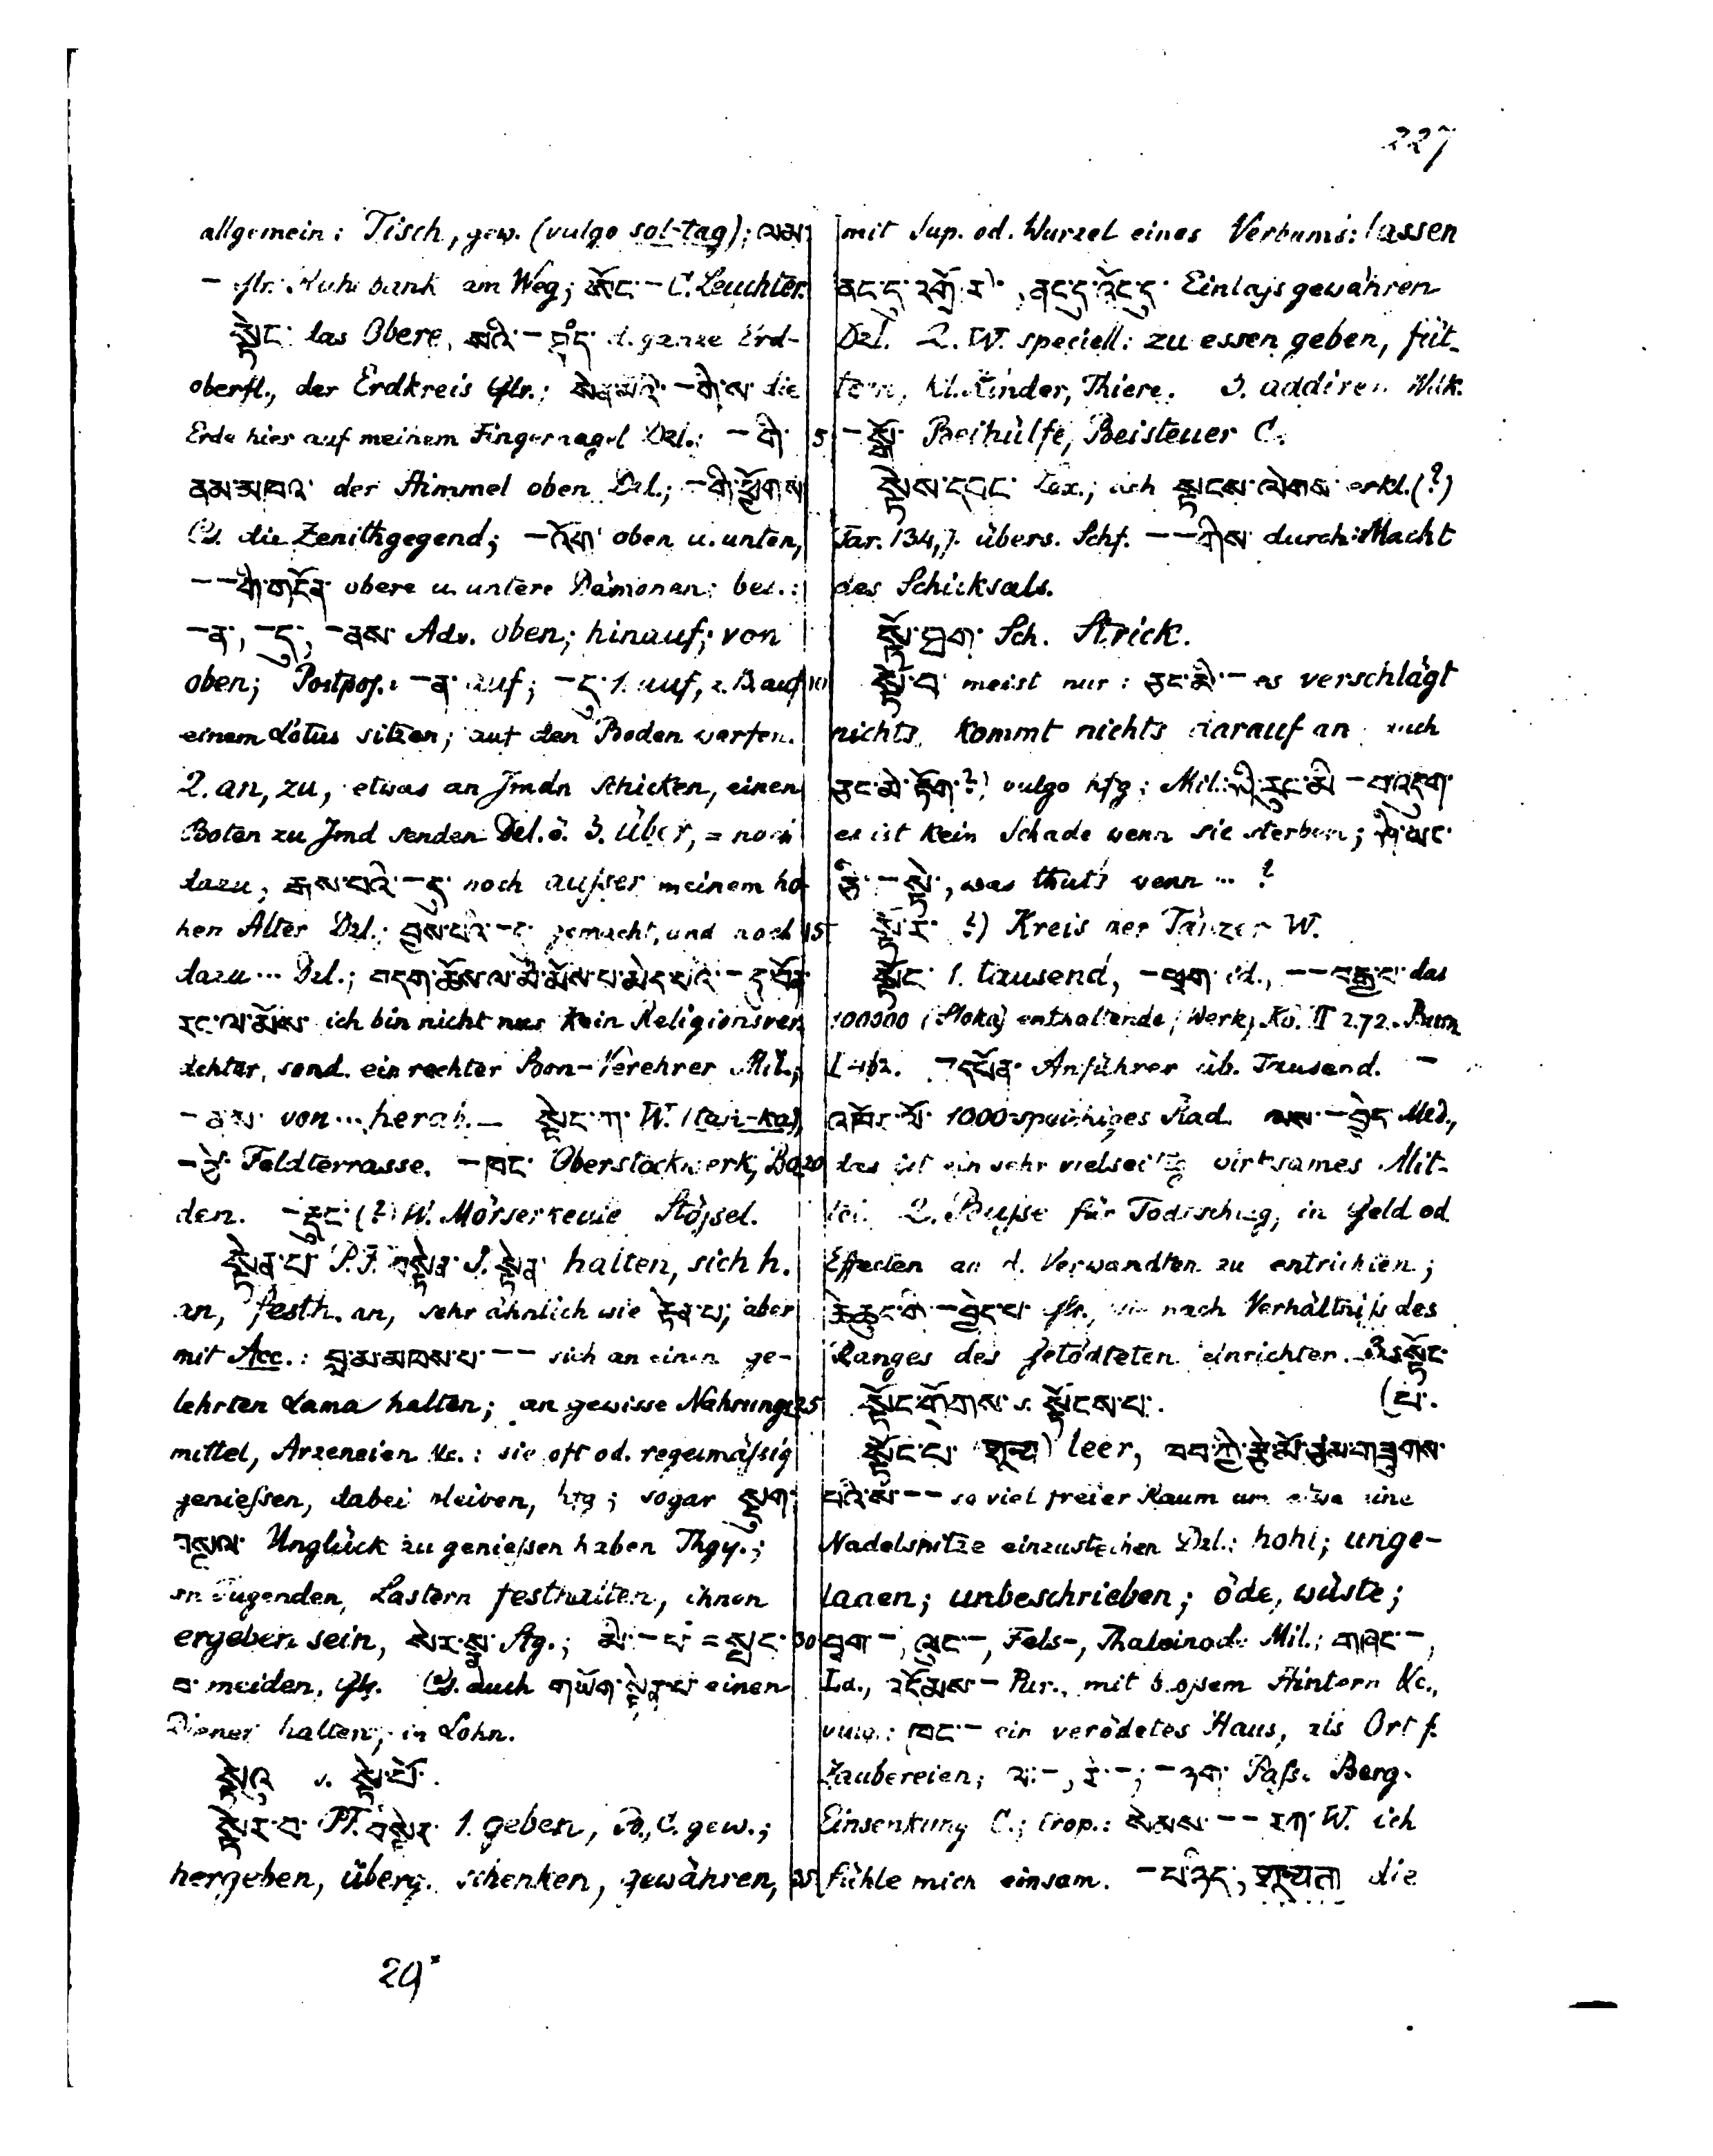 227
allgemein: Tisch, gew. (vulgo sol-tag); ལམ་
– Glr. Ruhebank am Weg; – C. Leuchter.
སྟེང་ das Obere, སའི་ – d. ganze Erd-
oberfl., der Erdkreis Glr.; die
Erde hier auf meinem Fingernagel Dzl.; – གི་
ནམ་མཁའ་ der Himmel oben Dzl.; – གི་ཕྱོགས་
Cs. die Zenithgegend; – འོག་ oben u. unten,
– – གི་གདོན་ obere u. untere Dämonen; bes.:
– ན་, – དུ་, – ནས་ Adv. oben; hinauf; von
oben; Postpos.: – ན་ auf; – དུ་ 1. auf, z. B. auf
einem Lotus sitzen; auf den Boden werfen.
2. an, zu, etwas an Jmdn schicken, einen
Boten zu Jmd senden Dzl. ö. 3. über, = noch
dazu; རྒས་པའི་ – དུ་ noch außer meinem ho-
hen Alter Dzl.; བྱས་པའི་ – དུ་ gemacht, und noch
dazu ... Dzl.; བདག་ཆོས་ལ་མི་མོས་པ་མེད་པའི་ – དུ་བོན་
རང་ལ་མོས་ ich bin nicht nur kein Religionsver
ächter, sond. ein rechter Bon-Verehrer Mil.;
– ནས་ von ... herab. – སྟེང་ཀ་ W.
– Feldterrasse. – ཁང་ Oberstockwerk, Bo
den. – (?) W. Mörserkeule Stößel.
སྟེན་པ་ Pf. F. བསྟེན་ J. སྟེན་ halten, sich h.
an, festh. an, sehr ähnlich wie རྟེན་པ་, aber
mit Acc.: བླ་མ་མཁས་པ་ – – sich an einen ge-
lehrten Lama halten; an gewisse Nahrungs
mittel, Arzeneien &c.: sie oft od. regelmäßig
genießen, dabei bleiben, hfg; sogar སྡུག་
བསྔལ་ Unglück zu genießen haben Thgy.;
an Tugenden, Lastern festhalten, ihnen
ergeben sein, སེར་སྣ་ Stg.; མི་ – པ་ = སྤང་
བ་ meiden, Glr. Cs. auch གཡོག་སྟེན་པ་ einen
Diener halten, in Lohn.
སྟེའུ s. སྟེ་པོ་.
སྟེར་བ་ Pf. བསྟེར་ 1. geben, B., C. gew.;
hergeben, überg. schenken, gewähren,
mit Sup. od. Wurzel eines Verbums: lassen
ནང་དུ་འགྲོ་ར་, ནང་དུ་འོང་དུ་ Einlaß gewähren
Dzl. 2. W. speciell: zu essen geben, füt-
tern, kl. Kinder, Thiere. 3. addiren Wdk.
5 – Beihülfe, Beisteuer C.
སྟེས་དབང་ Lex.; durch སྟངས་ལེགས་ erkl. (?)
Tar. 134,7. übers. Schf. – – གིས་ durch: Macht
des Schicksals.
སྟོ་ཐག་ Sch. Strick.
10 སྟོ་བ་ meist nur: ཅང་མི་ – es verschlägt
nichts, kommt nichts darauf an auch
ཅང་མི་རྟོག་?) vulgo hfg; Mil.: ཤི་རུང་མི་ – བར་འདུག་
es ist kein Schade wenn sie sterben;
ཅི་ – སྟེ་, was thut's wenn ... ?
15 སྟོ་ར་ ?) Kreis der Tänzer W.
སྟོང་ 1. tausend, – ཕྲག་ id., – – བརྒྱ་པ་ das
100000 (Sloka) enthaltende, Werk, Kö. II 272. Burn
I 462. – དཔོན་ Anführer üb. Tausend. –
འཁོར་ལོ་ 1000-speichiges Rad. ལས་ – བྱེད་ Med.,
20 das ist ein sehr vielseitig wirksames Mit-
tel. 2. Buße für Todtschlag, in Geld od
Effecten an d. Verwandten zu entrichten;
ཆེ་ཆུང་གི་ – བྱེད་པ་ Glr., sie nach Verhältniß des
Ranges des Getödteten einrichten. 3. s. སྟོང་
25 སྟོང་གྲོགས་ s. སྟོངས་པ་. (པ་.
སྟོང་པ་ शून्य leer,
– – so viel freier Raum um etwa eine
Nadelspitze einzustechen Dzl.; hohl; unge-
laden; unbeschrieben; öde, wüste;
30 བྲག་ –, ལུང་ –, Fels-, Thaleinöde Mil.; གཞང་ –,
Ld., – Pur., mit bloßem Hintern &c.,
vulg.: ཁང་ – ein verödetes Haus, als Ort f.
Zaubereien; ལ་ –, རི་ –; – རག་ Paß. Berg-
Einsenkung C.; trop.: སེམས་ – – རག་ W. ich
35 fühle mich einsam. – པ་ཉིད་, शून्यता die
29*